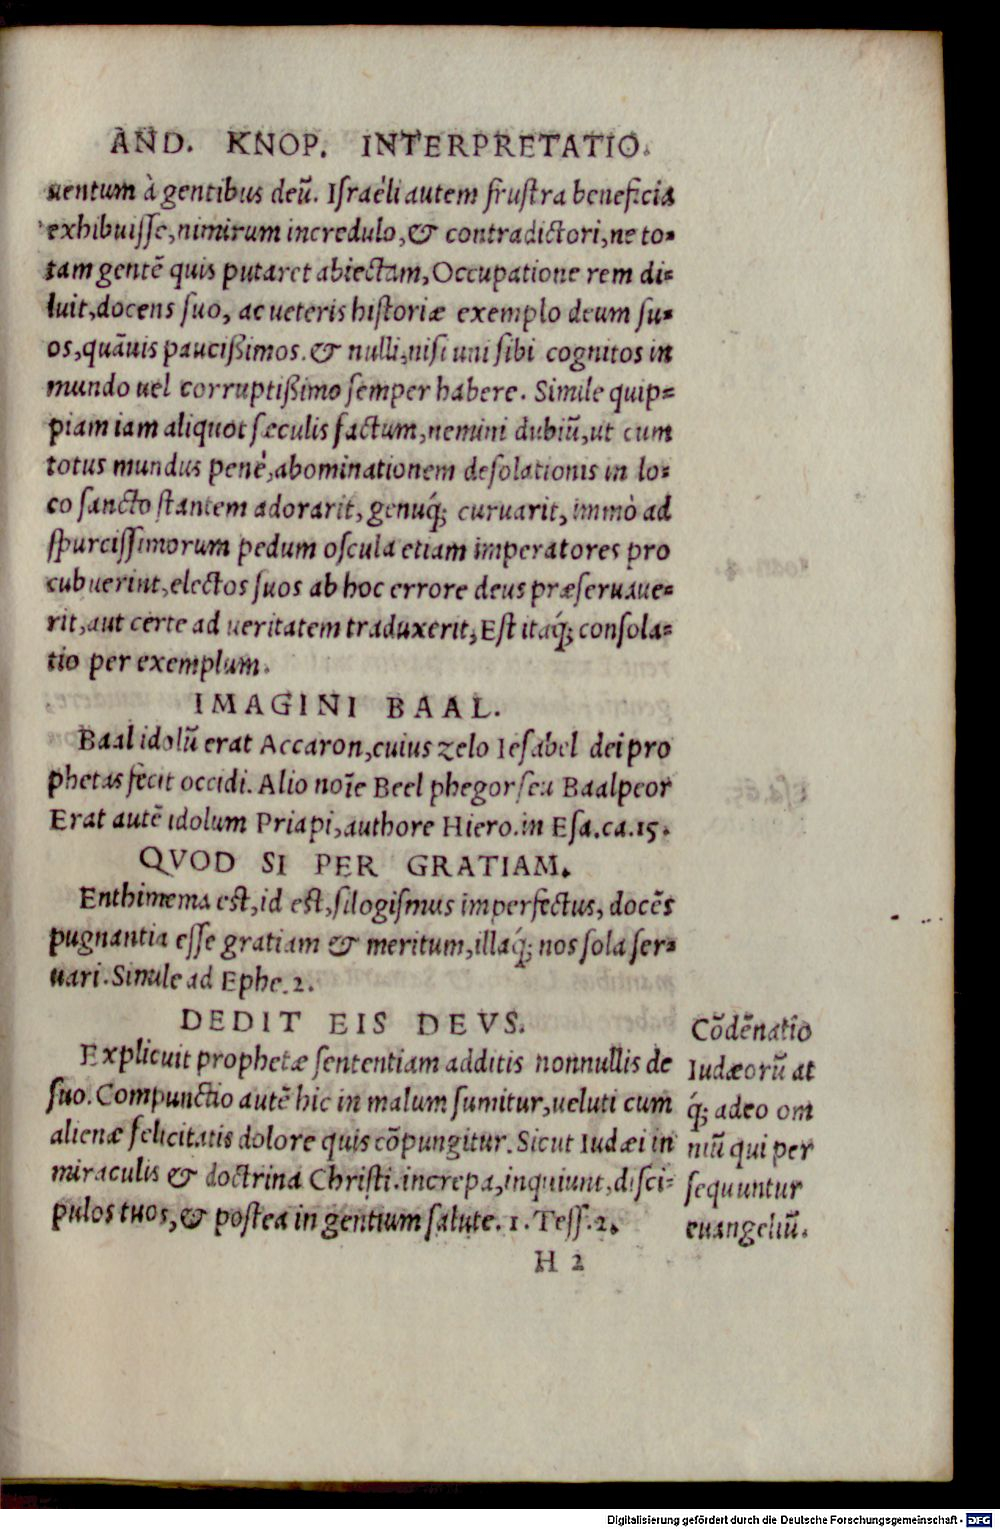 AND. KNOP. INTERPRETATIO.
uentum à gentibus deũ. Iſraëli autem fruſtra beneficia
exhibuiſſe, nimirum incredulo, & contradictori, ne to-
tam gentẽ quis putaret abiectam, Occupatione rem di-
luit, docens ſuo, ac ueteris hiſtoriæ exemplo deum ſu-
os, quãuis pauciſsimos. & nulli, niſi uni ſibi cognitos in
mundo uel corruptiſsimo ſemper habere. Simile quip-
piam iam aliquot ſæculis factum, nemini dubiũ, ut cum
totus mundus penè, abominationem deſolationis in lo-
co ſancto ſtantem adorarit, genuq́; curuarit, immò ad
ſpurciſſimorum pedum oſcula etiam imperatores pro
cubuerint, electos ſuos ab hoc errore deus præſeruaue-
rit, aut certe ad ueritatem traduxerit, Eſt itaq́; conſola-
tio per exemplum.
IMAGINI BAAL.
Baal idolũ erat Accaron, cuius zelo Ieſabel dei pro
phetas fecit occidi. Alio noĩe Beel phegor ſeu Baalpeor
Erat autẽ idolum Priapi, authore Hiero. in Eſa. ca. 15.
QVOD SI PER GRATIAM.
Enthimema eſt, id eſt, ſilogiſmus imperfectus, docẽs
pugnantia eſſe gratiam & meritum, illaq́; nos ſola ſer-
uari. Simile ad Ephe. 2.
DEDIT EIS DEVS.
Explicuit prophetæ ſententiam additis nonnullis de
ſuo. Compunctio autẽ hic in malum ſumitur, ueluti cum
alienæ felicitatis dolore quis cõpungitur. Sicut Iudæi in
miraculis & doctrina Chriſti. increpa, inquiunt, diſci-
pulos tuos, & poſtea in gentium ſalute. 1. Teſſ. 2.
Cõdẽnatio
Iudæorũ at
q́; adeo om
niũ qui per
ſequuntur
euangeliũ.
H 2
Digitalisierung gefördert durch die Deutsche Forschungsgemeinschaft - DFG